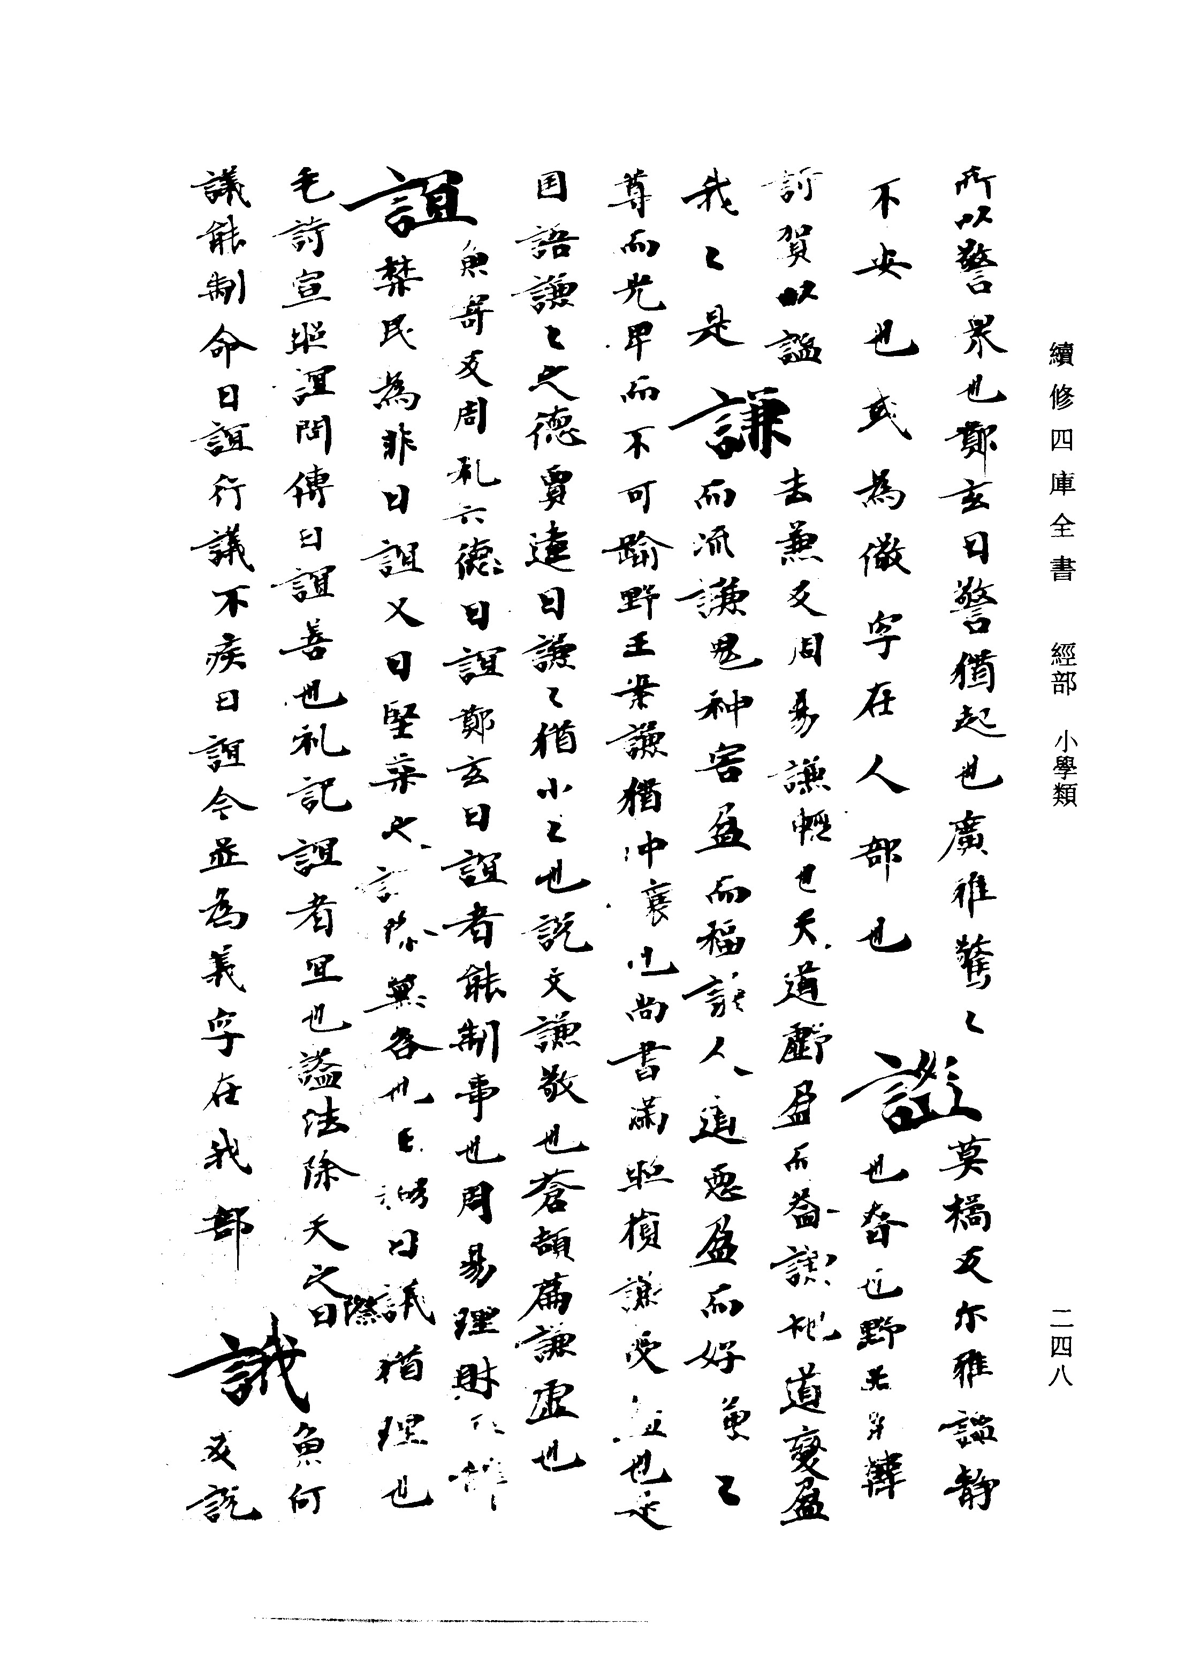 續修四庫全書 經部 小學類
二四八
所以警衆也鄭玄曰警猶起也廣雅驚〻 謐 莫橘反尔雅謐静
不安也或為儆字在人部也 也也眘也野王案韓
詩賀以謐 謙 去兼反周易謙輕也天道虧盈而益謙地道變盈
我〻是 而流謙鬼神害盈而福謙人道惡盈而好謙〻
尊而光卑而不可踰野王案謙猶沖讓也尚書滿招損謙受益也是
囯語謙〻之德賈逵曰謙〻猶小〻也說文謙敬也蒼頡篇謙虚也
誼 魚寄反周礼六德曰誼鄭玄曰誼者能制事也周易理財正辞
禁民為非曰誼又曰 也 曰議猶理也
毛詩宣昭誼問傳曰誼善也礼記誼者宜也謚法除天之際曰 誐 魚何
議能制命曰誼行議不疾曰誼今並為義字在我部 反說